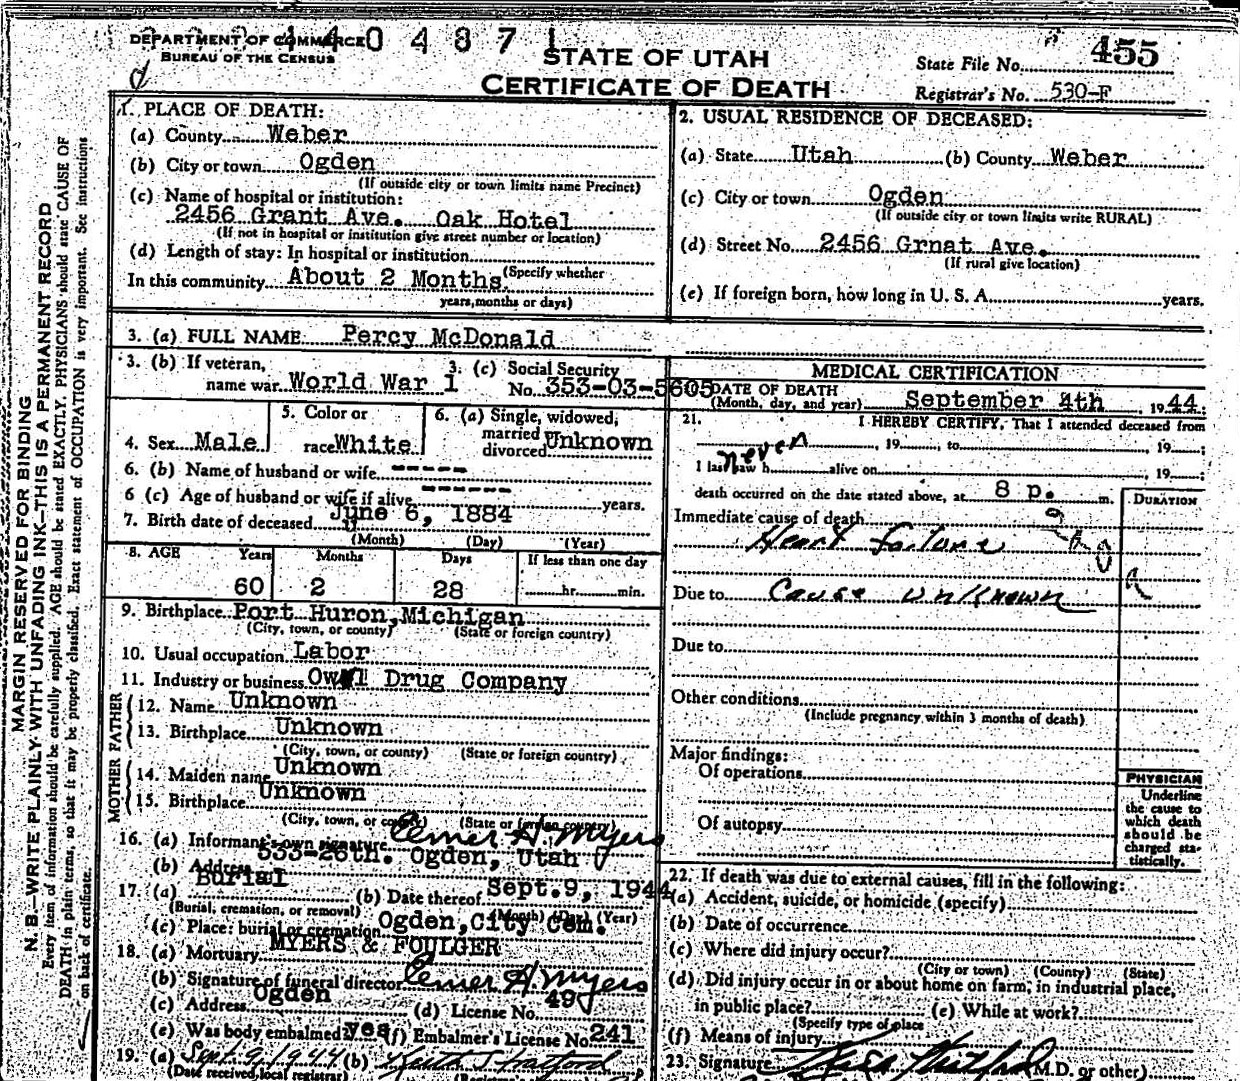 DEPARTMENT OF COMMERCE 0 4 8 7 1
BUREAU OF THE CENSUS
STATE OF UTAH
CERTIFICATE OF DEATH
State File No. 455
Registrar's No. 530-F
MARGIN RESERVED FOR BINDING
N. B.—WRITE PLAINLY WITH UNFADING INK—THIS IS A PERMANENT RECORD
Every item of information should be carefully supplied. AGE should be stated EXACTLY. PHYSICIANS should state CAUSE OF
DEATH in plain terms, so that it may be properly classified. Exact statement of OCCUPATION is very important. See instructions
on back of certificate.
1. PLACE OF DEATH:
(a) County Weber
(b) City or town Ogden
(If outside city or town limits name Precinct)
(c) Name of hospital or institution:
2456 Grant Ave. Oak Hotel
(If not in hospital or institution give street number or location)
(d) Length of stay: In hospital or institution
(Specify whether
In this community About 2 Months
years, months or days)
2. USUAL RESIDENCE OF DECEASED:
(a) State Utah (b) County Weber
(c) City or town Ogden
(If outside city or town limits write RURAL)
(d) Street No. 2456 Grnat Ave.
(If rural give location)
(e) If foreign born, how long in U. S. A. years.
3. (a) FULL NAME Percy McDonald
3. (b) If veteran,
name war World War 1
3. (c) Social Security
No. 353-03-5605
4. Sex Male
5. Color or
race White
6. (a) Single, widowed,
married
divorced Unknown
6. (b) Name of husband or wife -----
6 (c) Age of husband or wife if alive ------ years.
7. Birth date of deceased June 6, 1884
(Month) (Day) (Year)
8. AGE Years Months Days If less than one day
60 2 28 hr. min.
9. Birthplace Port Huron, Michigan
(City, town, or county) (State or foreign country)
10. Usual occupation Labor
11. Industry or business Owl Drug Company
FATHER
12. Name Unknown
13. Birthplace Unknown
(City, town, or county) (State or foreign country)
MOTHER
14. Maiden name Unknown
15. Birthplace Unknown
(City, town, or county) (State or foreign country)
16. (a) Informant's own signature Elmer H. Myers
(b) Address 533-26th. Ogden, Utah
17. (a) Burial (b) Date thereof Sept. 9, 1944
(Burial, cremation, or removal) (Month) (Day) (Year)
(c) Place: burial or cremation Ogden, City Cem.
18. (a) Mortuary MYERS & FOULGER
(b) Signature of funeral director Elmer H. Myers
(c) Address Ogden (d) License No. 49
(e) Was body embalmed yes (f) Embalmer's License No. 241
19. (a) Sept. 9, 1944 (b)
(Date received local registrar)
MEDICAL CERTIFICATION
DATE OF DEATH
(Month, day, and year) September 4th, 1944
21. I HEREBY CERTIFY, That I attended deceased from
never, 19 to, 19
I last saw h alive on, 19
death occurred on the date stated above, at 8 p. m.
DURATION
Immediate cause of death
Heart failure
Due to Cause unknown
Due to
Other conditions
(Include pregnancy within 3 months of death)
Major findings:
Of operations
Of autopsy
PHYSICIAN
Underline
the cause to
which death
should be
charged sta-
tistically.
22. If death was due to external causes, fill in the following:
(a) Accident, suicide, or homicide (specify)
(b) Date of occurrence
(c) Where did injury occur?
(City or town) (County) (State)
(d) Did injury occur in or about home on farm, in industrial place,
in public place? (e) While at work?
(Specify type of place
(f) Means of injury
23. Signature (M.D. or other)